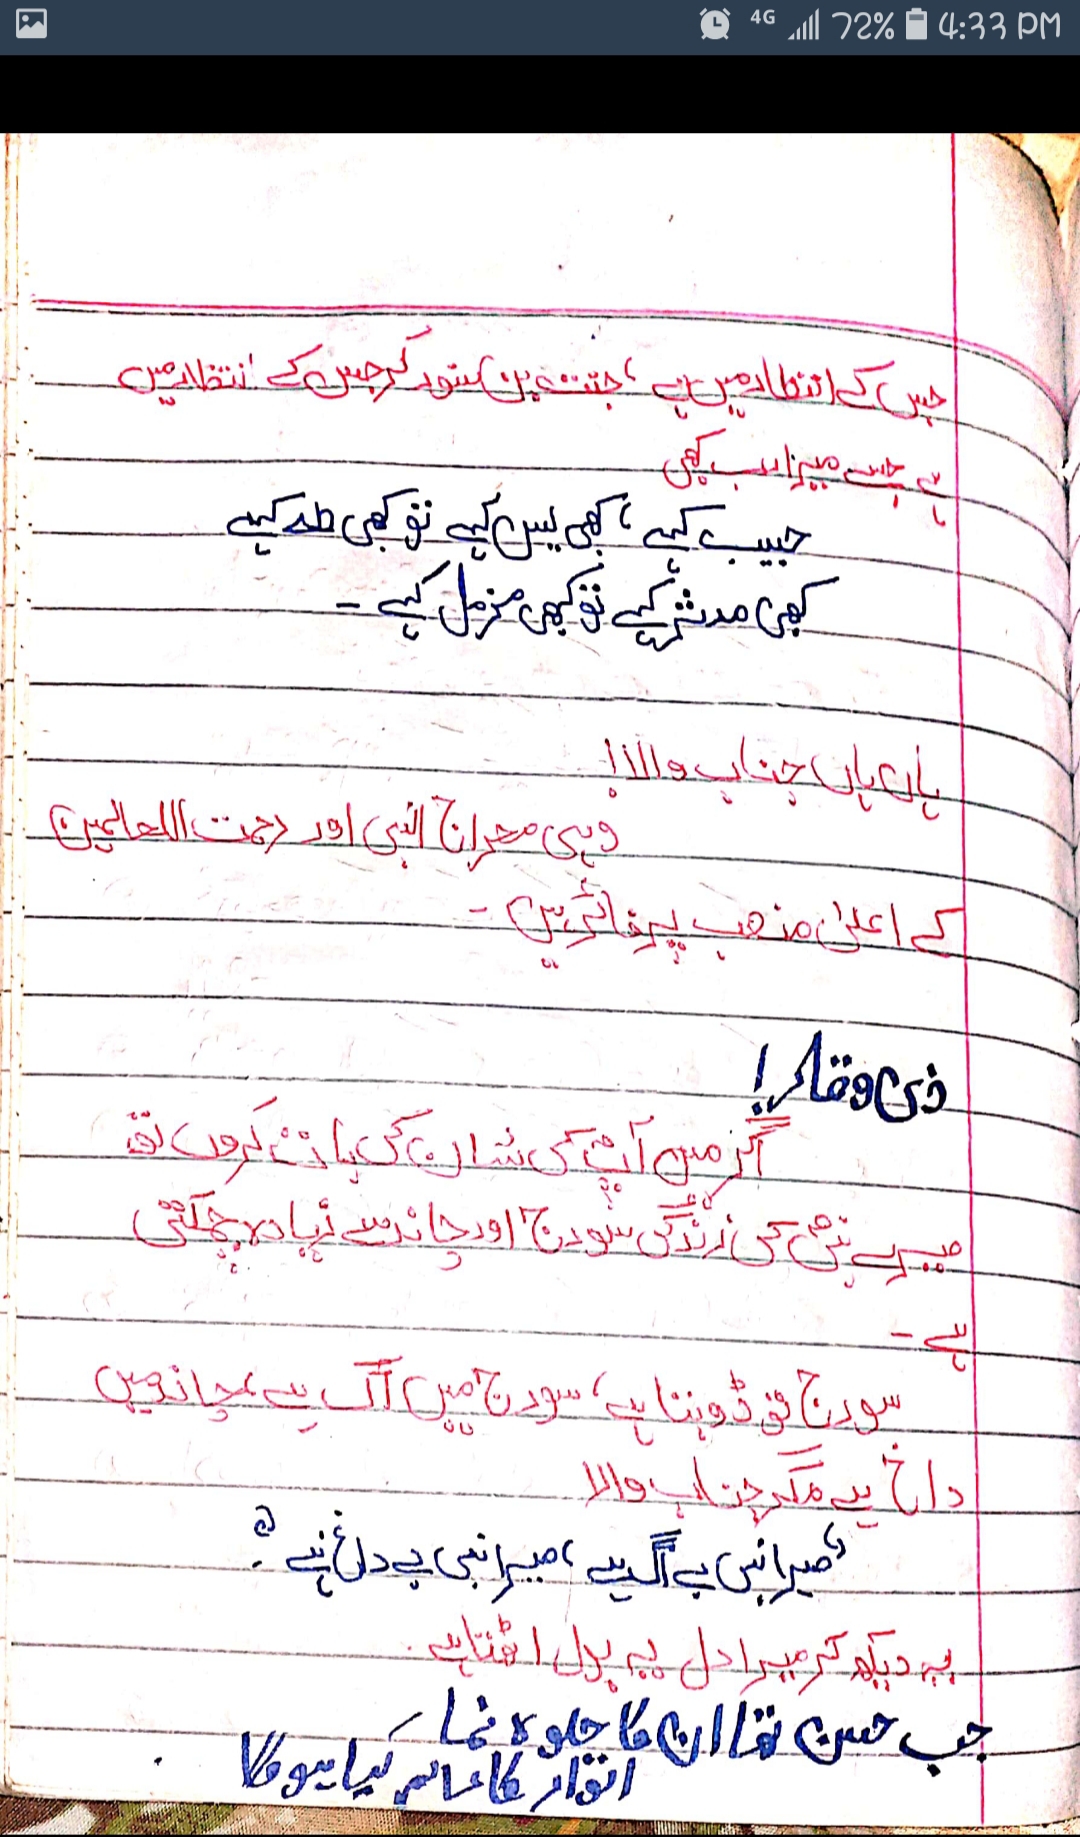 4G 72% 4:33 PM
جس کے انتظار میں ہے، جنت بن سنور کر جس کے انتظار میں
ہے جسے میرا رب کبھی
حبیب کہے، کبھی یس کہے تو کبھی طہ کہے
کبھی مدثر کہے تو کبھی مزمل کہے -
ہاں ہاں جناب والا!
وہی معراج النبی اور رحمت اللعالمین
کے اعلیٰ منصب پر فائز ہیں -
ذی وقار!
اگر میں آپ کی شان کی بات کروں تو
میرے نبی کی زندگی سورج اور چاند سے زیادہ چمکتی
ہے -
سورج تو ڈوبتا ہے، سورج میں آگ ہے، چاند میں
داغ ہے مگر جناب والا
"میرا نبی بے آگ ہے، میرا نبی بے داغ ہے"
یہ دیکھ کر میرا دل یہ بول اٹھتا ہے
جب حسن تھا ان کا جلوہ نما
انوار کا عالم کیا ہوگا